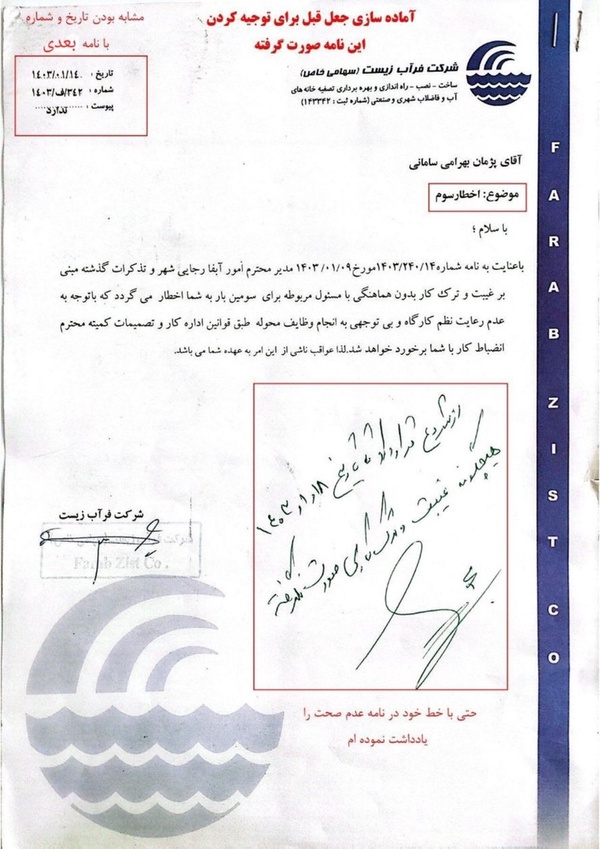 آماده سازی جعل قبل برای توجیه کردن
این نامه صورت گرفته
مشابه بودن تاریخ و شماره
با نامه بعدی
تاریخ : ۱۴۰۳/۰۱/۱۴
شماره : ۱۴۰۳/ف/۳۴۲
پیوست : ندارد
شرکت فرآب زیست (سهامی خاص)
ساخت - نصب - راه اندازی و بهره برداری تصفیه خانه های
آب و فاضلاب شهری و صنعتی (شماره ثبت : ۱۴۳۳۴۲)
آقای پژمان بهرامی سامانی
موضوع: اخطارسوم
با سلام ؛
باعنایت به نامه شماره ۱۴۰۳/۲۴۰/۱۴مورخ ۱۴۰۳/۰۱/۰۹ مدیر محترم اُمور آبفا رجایی شهر و تذکرات گذشته مبنی
بر غیبت و ترک کار بدون هماهنگی با مسئول مربوطه برای سومین بار به شما اخطار می گردد که باتوجه به
عدم رعایت نظم کارگاه و بی توجهی به انجام وظایف محوله طبق قوانین اداره کار و تصمیمات کمیته محترم
انضباط کار با شما برخورد خواهد شد.لذا عواقب ناشی از این امر به عهده شما می باشد.
از شروع قرارداد تا تاریخ ۱۴۰۳/۱/۱۸
هیچگونه غیبت و ترک کاری صورت نگرفته
شرکت فرآب زیست
Farab Zist Co.
حتی با خط خود در نامه عدم صحت را
یادداشت نموده ام
FARAB ZIST CO